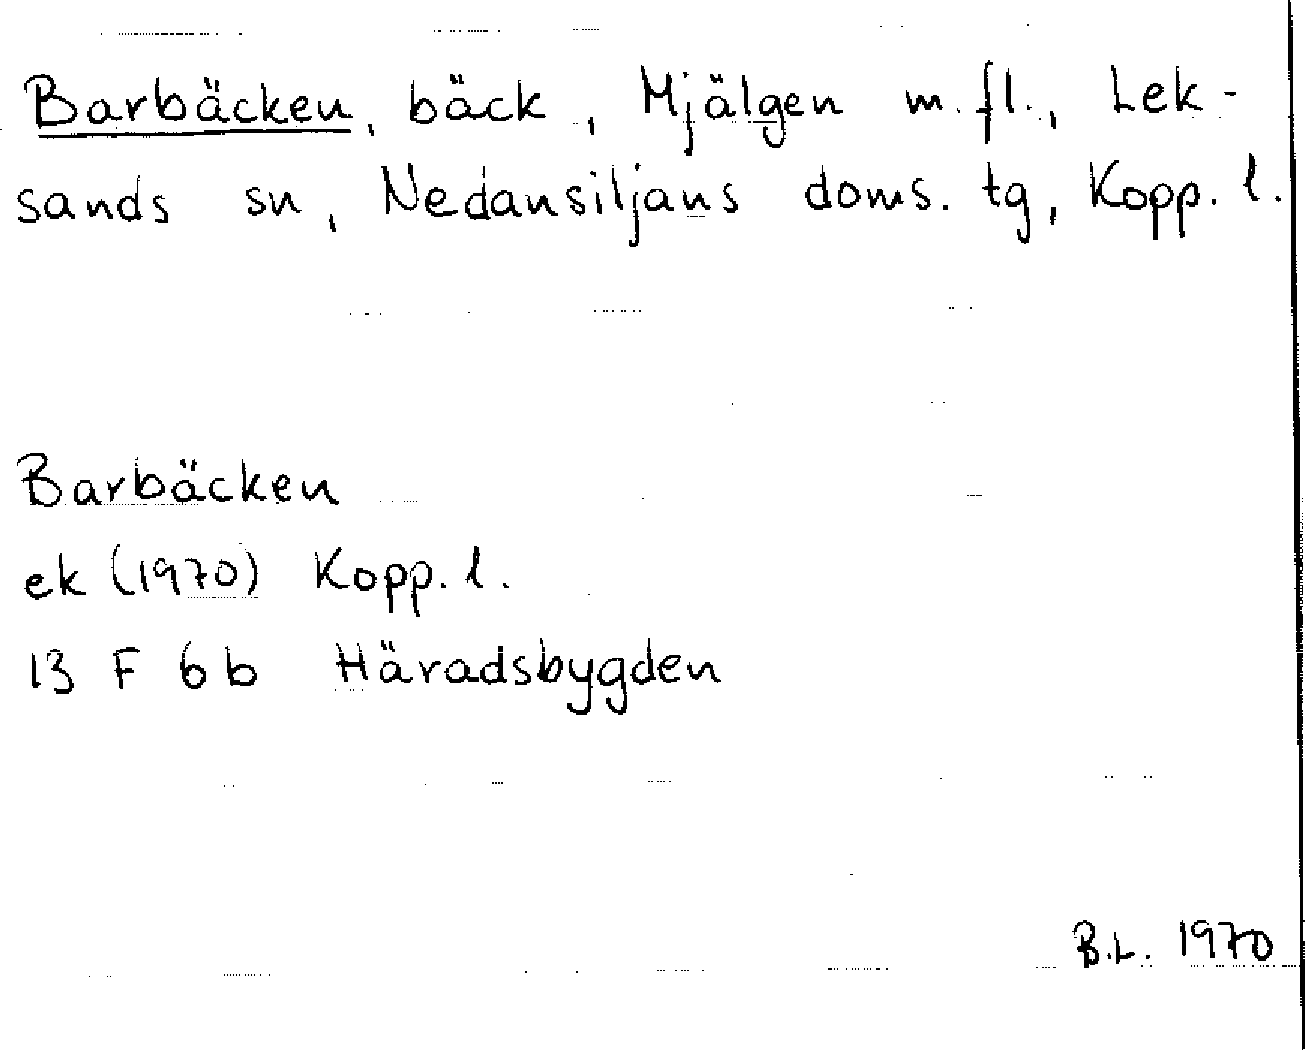 Barbäcken, bäck, Mjälgen m.fl., Lek-
sands sn, Nedansiljans doms. tg, Kopp. l.
Barbäcken
ek (1970) Kopp. l.
13 F 6b Häradsbygden
B.L. 1970